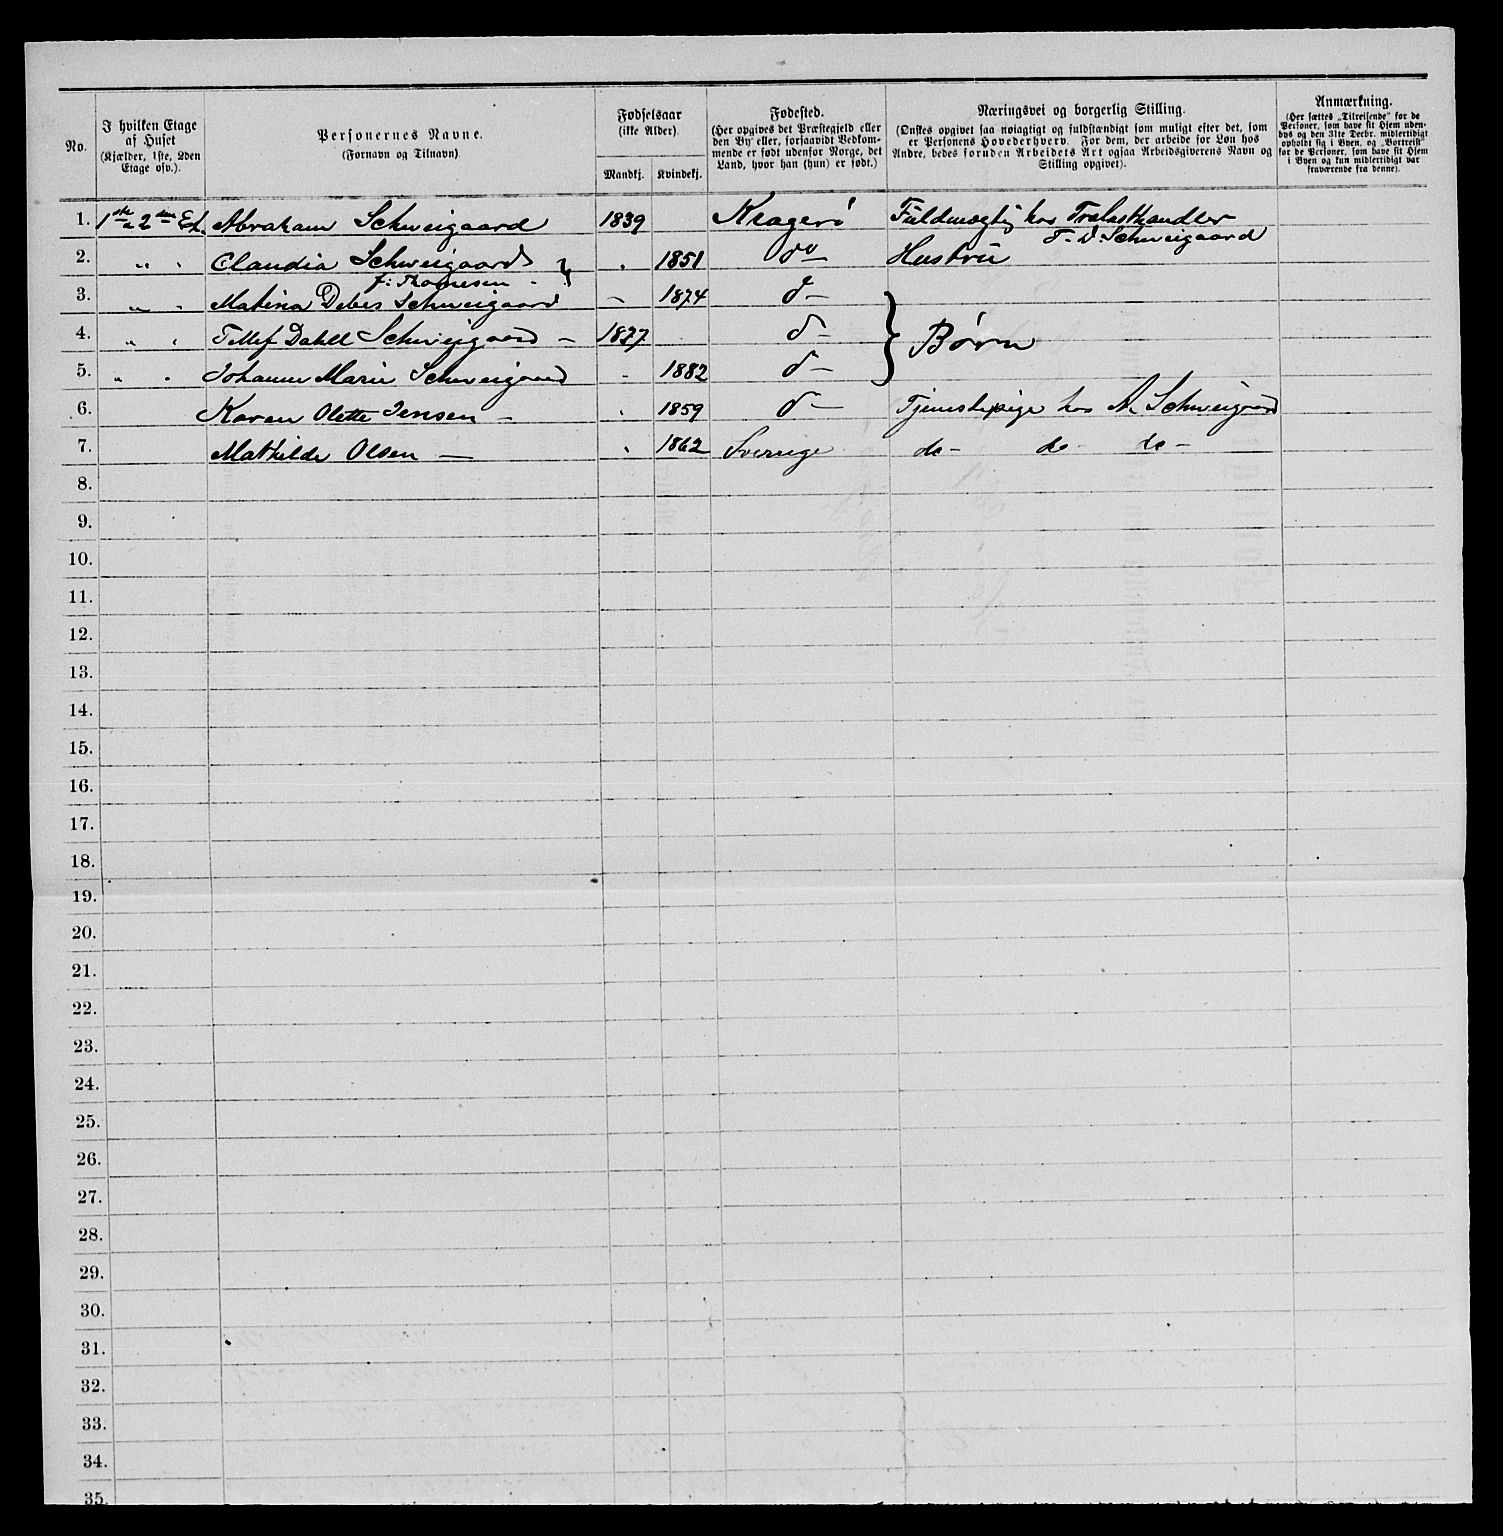 No.
I hvilken Etage af Huset (Kjælder, 1ste, 2den Etage osv.).
Personernes Navne. (Fornavn og Tilnavn)
Fødselsaar (ikke Alder).
Mandkj. Kvindekj.
Fødested. (Her opgives det Præstegjeld eller den By eller, forsaavidt Vedkommende er født udenfor Norge, det Land, hvor han (hun) er født.)
Næringsvei og borgerlig Stilling. (Ønskes opgivet saa nøiagtigt og fuldstændigt som muligt efter det, som er Personens Hovederhverv. For dem, der arbeide for Løn hos Andre, bedes foruden Arbeidets Art ogsaa Arbeidsgiverens Navn og Stilling opgivet).
Anmærkning. (Her sættes „Tilreisende" for de Personer, som have sit Hjem udenbys og den 31te Decbr. midlertidigt opholdt sig i Byen, og „Bortreist" for de Personer, som have sit Hjem i Byen og kun midlertidigt var fraværende fra denne).
1. 1ste & 2den Et. Abraham Schweigaard 1839 Kragerø Fuldmægtig hos Trælasthandler
T. D. Schweigaard
2. " " Claudia Schweigaard 1851 do Hustru
f: Thomesen
3. " " Matina Debes Schweigaard - 1874 d -
4. " " Tellef Dahll Schweigaard - 1877 d - } Børn
5. " " Johanne Marie Schweigaard 1882 d -
6. Karen Olette Jensen - 1859 d - Tjenestepige hos A. Schweigaard
7. Mathilde Olsen - 1862 Sverige do - do do -
8.
9.
10.
11.
12.
13.
14.
15.
16.
17.
18.
19.
20.
21.
22.
23.
24.
25.
26.
27.
28.
29.
30.
31.
32.
33.
34.
35.